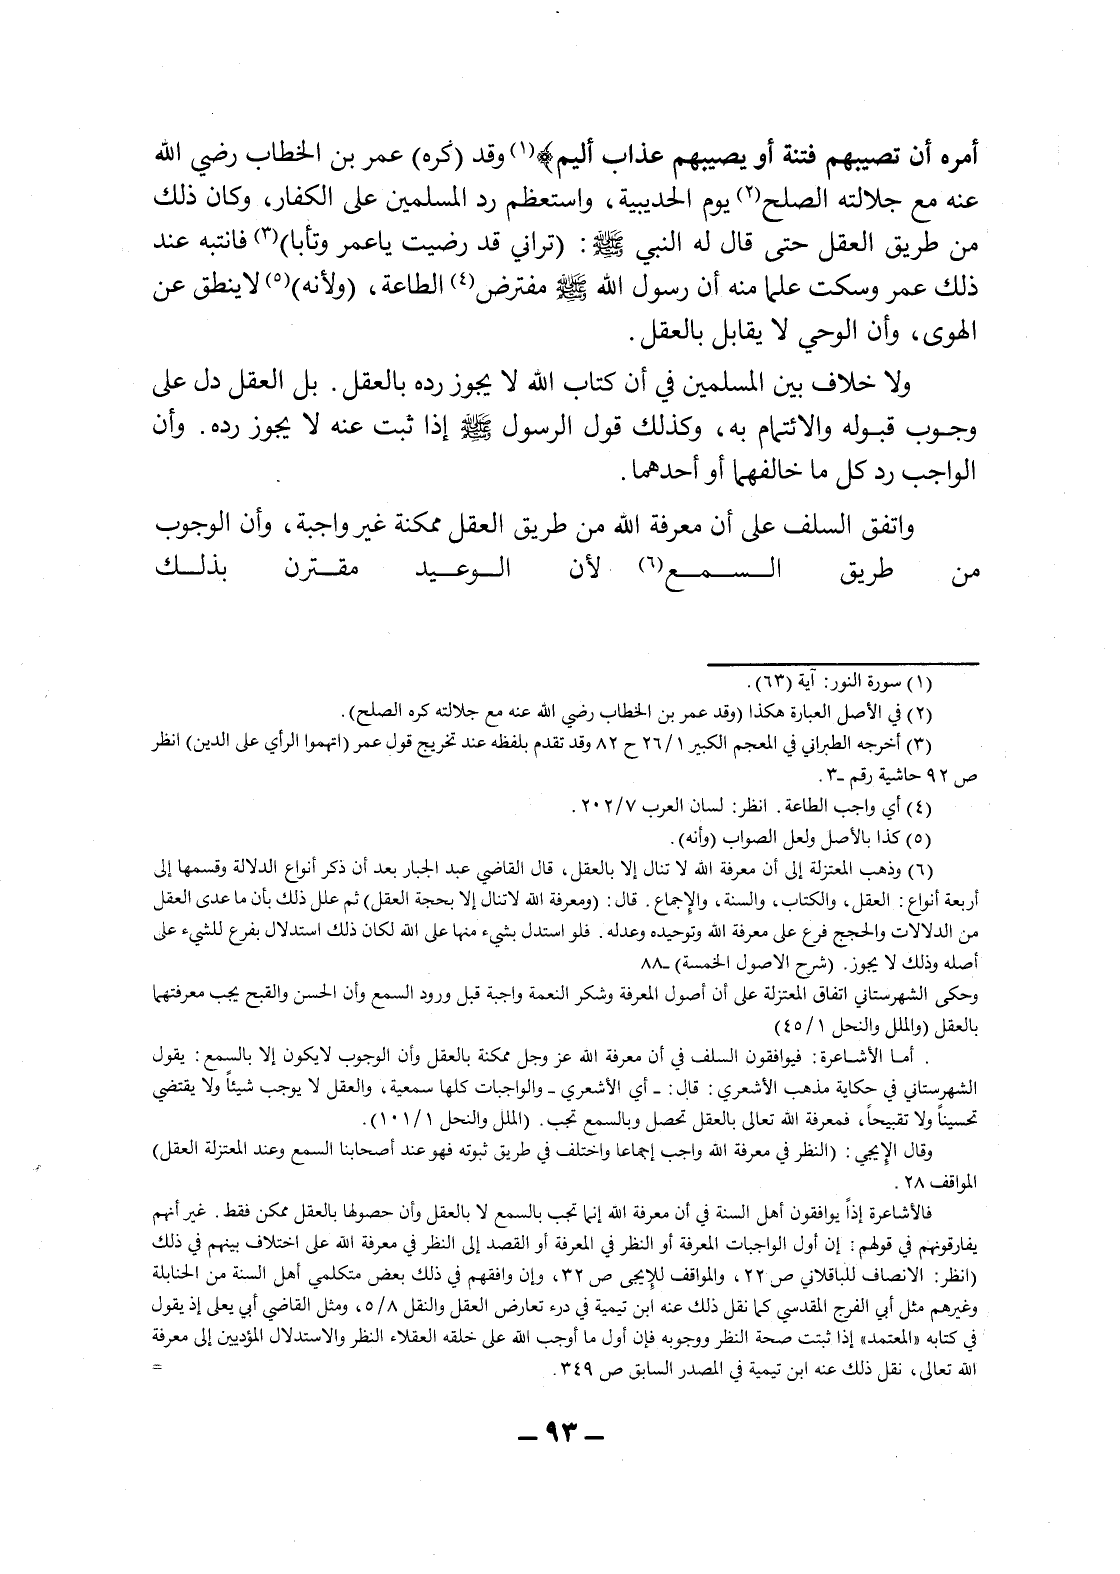 أمره أن تصيبهم فتنة أو يصيبهم عذاب أليم﴾(١) وقد (كره) عمر بن الخطاب رضي الله
عنه مع جلالته الصلح(٢) يوم الحديبية، واستعظم رد المسلمين على الكفار، وكان ذلك
من طريق العقل حتى قال له النبي ﷺ: (تراني قد رضيت ياعمر وتأبا)(٣) فانتبه عند
ذلك عمر وسكت علما منه أن رسول الله ﷺ مفترض(٤) الطاعة، (ولأنه)(٥) لاينطق عن
الهوى، وأن الوحي لا يقابل بالعقل.
ولا خلاف بين المسلمين في أن كتاب الله لا يجوز رده بالعقل. بل العقل دل على
وجوب قبوله والائتمام به، وكذلك قول الرسول ﷺ إذا ثبت عنه لا يجوز رده. وأن
الواجب رد كل ما خالفهما أو أحدهما.
واتفق السلف على أن معرفة الله من طريق العقل ممكنة غير واجبة، وأن الوجوب
من طريق السمع(٦) لأن الوعيد مقترن بذلك
(١) سورة النور: آية (٦٣).
(٢) في الأصل العبارة هكذا (وقد عمر بن الخطاب رضي الله عنه مع جلالته كره الصلح).
(٣) أخرجه الطبراني في المعجم الكبير ٢٦/١ ح ٨٢ وقد تقدم بلفظه عند تخريج قول عمر (اتهموا الرأي على الدين) انظر
ص ٩٢ حاشية رقم -٣.
(٤) أي واجب الطاعة. انظر: لسان العرب ٢٠٢/٧.
(٥) كذا بالأصل ولعل الصواب (وأنه).
(٦) وذهب المعتزلة إلى أن معرفة الله لا تنال إلا بالعقل، قال القاضي عبد الجبار بعد أن ذكر أنواع الدلالة وقسمها إلى
أربعة أنواع: العقل، والكتاب، والسنة، والإجماع. قال: (ومعرفة الله لاتنال إلا بحجة العقل) ثم علل ذلك بأن ما عدى العقل
من الدلالات والحجج فرع على معرفة الله وتوحيده وعدله. فلو استدل بشيء منها على الله لكان ذلك استدلال بفرع للشيء على
أصله وذلك لا يجوز. (شرح الاصول الخمسة) -٨٨
وحكى الشهرستاني اتفاق المعتزلة على أن أصول المعرفة وشكر النعمة واجبة قبل ورود السمع وأن الحسن والقبح يجب معرفتهما
بالعقل (والملل والنحل ٤٥/١)
. أما الأشاعرة: فيوافقون السلف في أن معرفة الله عز وجل ممكنة بالعقل وأن الوجوب لايكون إلا بالسمع: يقول
الشهرستاني في حكاية مذهب الأشعري: قال: - أي الأشعري - والواجبات كلها سمعية، والعقل لا يوجب شيئاً ولا يقتضي
تحسيناً ولا تقبيحاً، فمعرفة الله تعالى بالعقل تحصل وبالسمع تجب. (الملل والنحل ١٠١/١).
وقال الإيجي: (النظر في معرفة الله واجب إجماعا واختلف في طريق ثبوته فهو عند أصحابنا السمع وعند المعتزلة العقل)
المواقف ٢٨.
فالأشاعرة إذاً يوافقون أهل السنة في أن معرفة الله إنما تجب بالسمع لا بالعقل وأن حصولها بالعقل ممكن فقط. غير أنهم
يفارقونهم في قولهم: إن أول الواجبات المعرفة أو النظر في المعرفة أو القصد إلى النظر في معرفة الله على اختلاف بينهم في ذلك
(انظر: الانصاف للباقلاني ص ٢٢، والمواقف للإيجى ص ٣٢، وإن وافقهم في ذلك بعض متكلمي أهل السنة من الحنابلة
وغيرهم مثل أبي الفرج المقدسي كما نقل ذلك عنه ابن تيمية في درء تعارض العقل والنقل ٥/٨، ومثل القاضي أبي يعلى إذ يقول
في كتابه «المعتمد» إذا ثبتت صحة النظر ووجوبه فإن أول ما أوجب الله على خلقه العقلاء النظر والاستدلال المؤديين إلى معرفة
الله تعالى، نقل ذلك عنه ابن تيمية في المصدر السابق ص ٣٤٩. =
- ٩٣ -